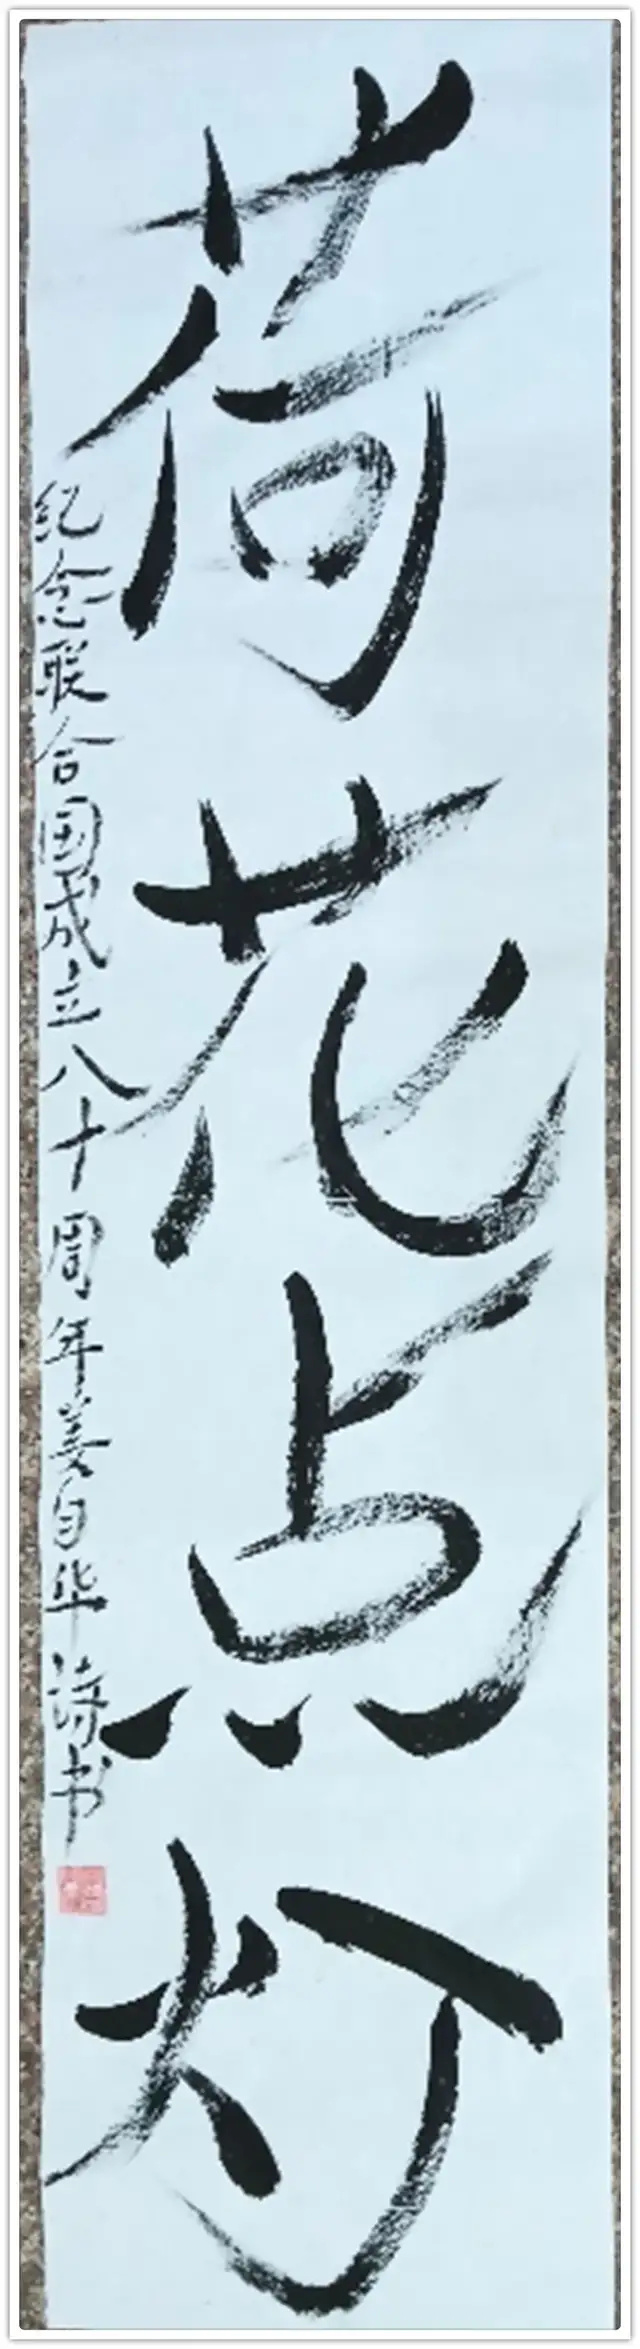 荷花点灯
纪念联合国成立八十周年姜自华诗书